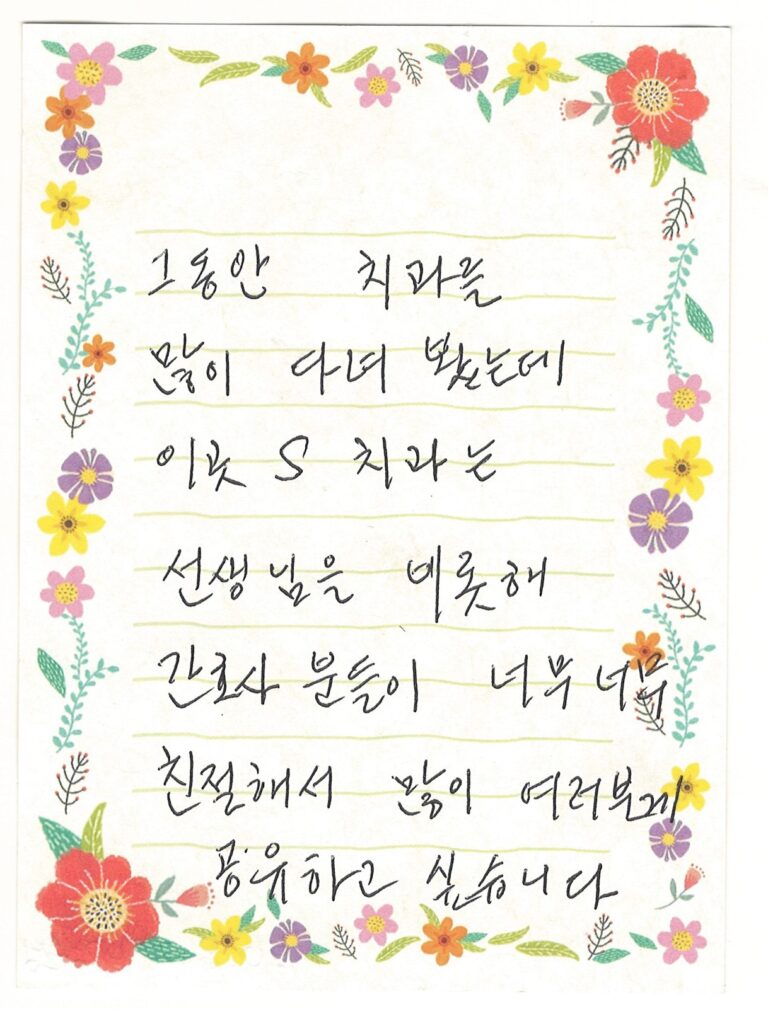 그동안 치과를
많이 다녀 봤는데
이곳 S 치과는
선생님을 비롯해
간호사 분들이 너무 너무
친절해서 많이 여러부게
공유하고 싶습니다